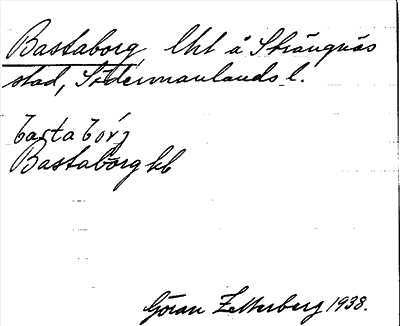 Bastaborg lht å Strängnäs
stad, Södermanlands l.
basta bórj
Bastaborg kb
Göran Zetterberg 1938.